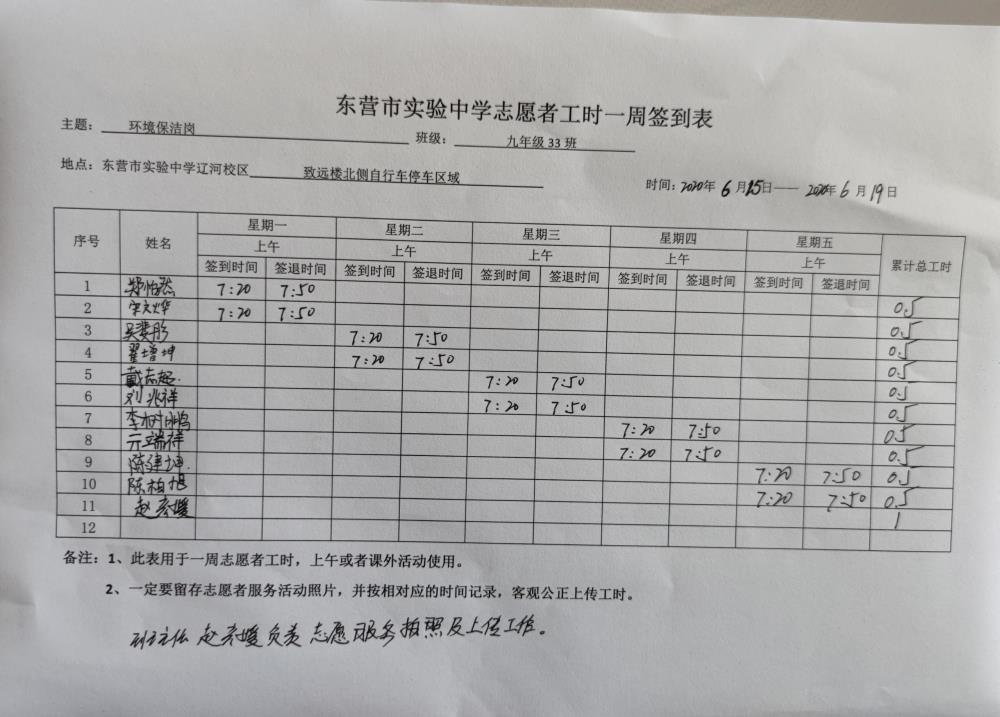 东营市实验中学志愿者工时一周签到表
主题: 环境保洁岗 班级: 九年级 33 班
地点: 东营市实验中学辽河校区 致远楼北侧自行车停车区域 时间: 2020年 6 月15日—— 2020年 6 月 19 日
序号 姓名 星期一 星期二 星期三 星期四 星期五 累计总工时
上午 上午 上午 上午 上午
签到时间 签退时间 签到时间 签退时间 签到时间 签退时间 签到时间 签退时间 签到时间 签退时间
1 郑怡然 7:20 7:50 0.5
2 宋文烨 7:20 7:50 0.5
3 吴斐彤 7:20 7:50 0.5
4 翟增坤 7:20 7:50 0.5
5 戴志超. 7:20 7:50 0.5
6 刘兆祥 7:20 7:50 0.5
7 李树鹏 7:20 7:50 0.5
8 亓端祥 7:20 7:50 0.5
9 陈建坤. 7:20 7:50 0.5
10 陈柏旭 7:20 7:50 0.5
11 赵秀媛 1
12
备注: 1、此表用于一周志愿者工时，上午或者课外活动使用。
2、一定要留存志愿者服务活动照片，并按相对应的时间记录，客观公正上传工时。
班主任 赵秀媛负责 志愿服务拍照及上传工作。